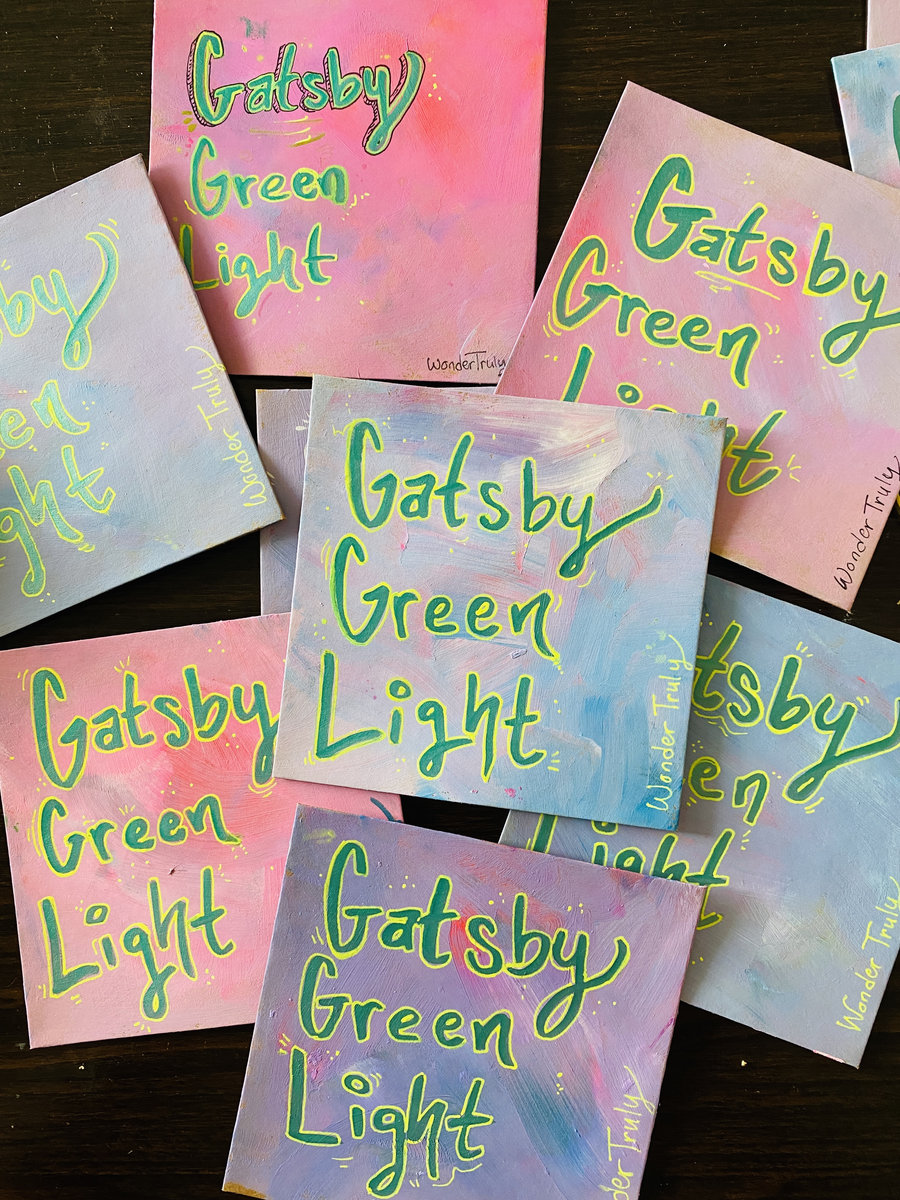 Gatsby
Green
Light
WonderTruly
Gatsby
Green
Light
Wonder Truly
by
en
ght
Wonder Truly
Gatsby
Green
Light
Wonder Truly
Gatsby
Green
Light
tsby
en
Light
Wonder Truly
Gatsby
Green
Light
der Truly